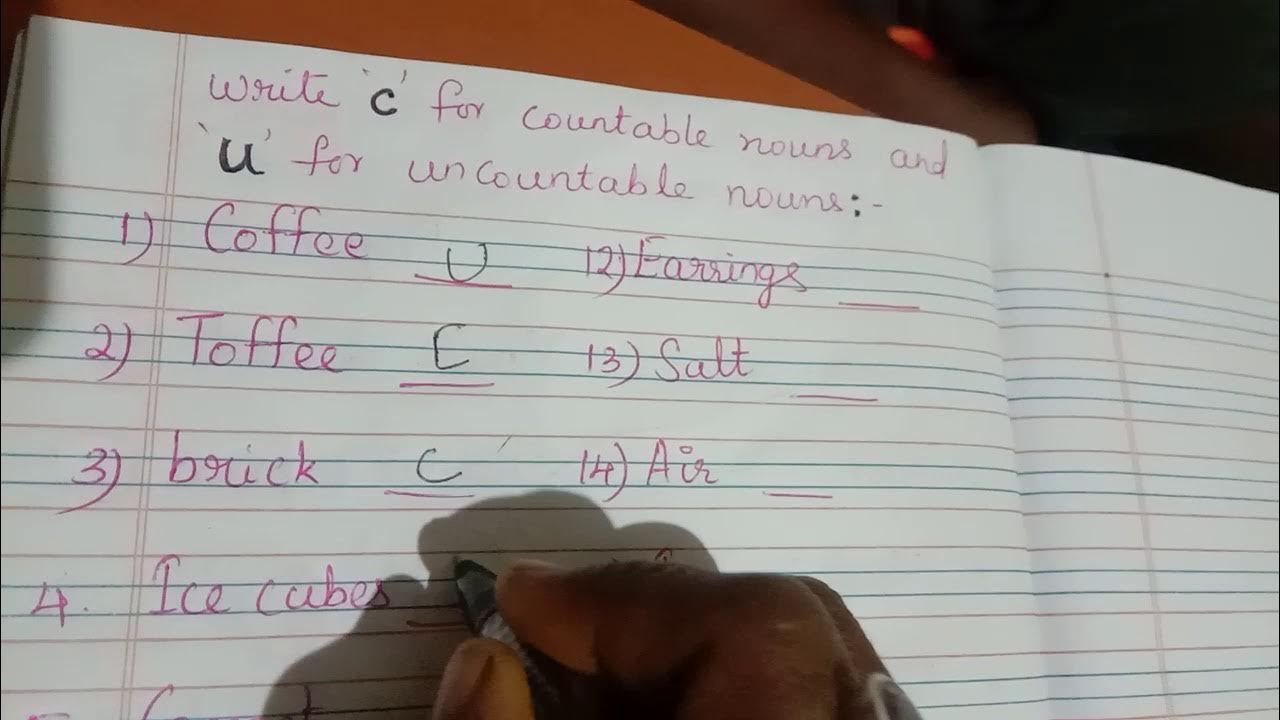 write 'c' for countable nouns and
'u' for uncountable nouns:-
1) Coffee U 12) Earrings
2) Toffee C 13) Salt
3) brick C 14) Air
4. Ice cubes